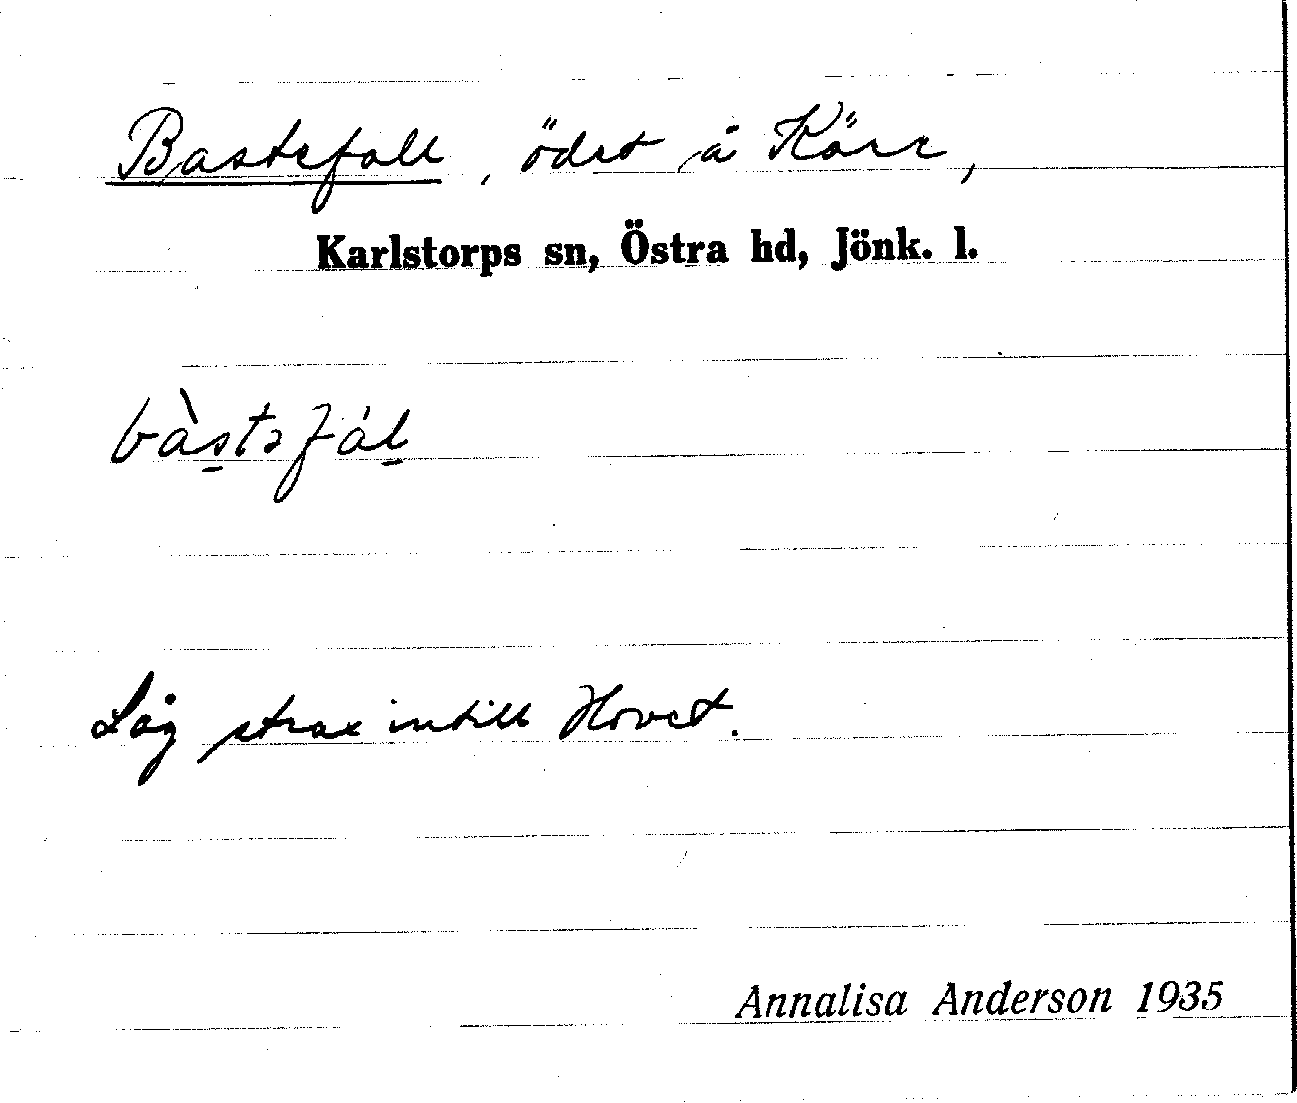 Bastefall, ödet å Kärr,
Karlstorps sn, Östra hd, Jönk. l.
bàs̱təfáḻ
Låg strax intill Hovet.
Annalisa Anderson 1935